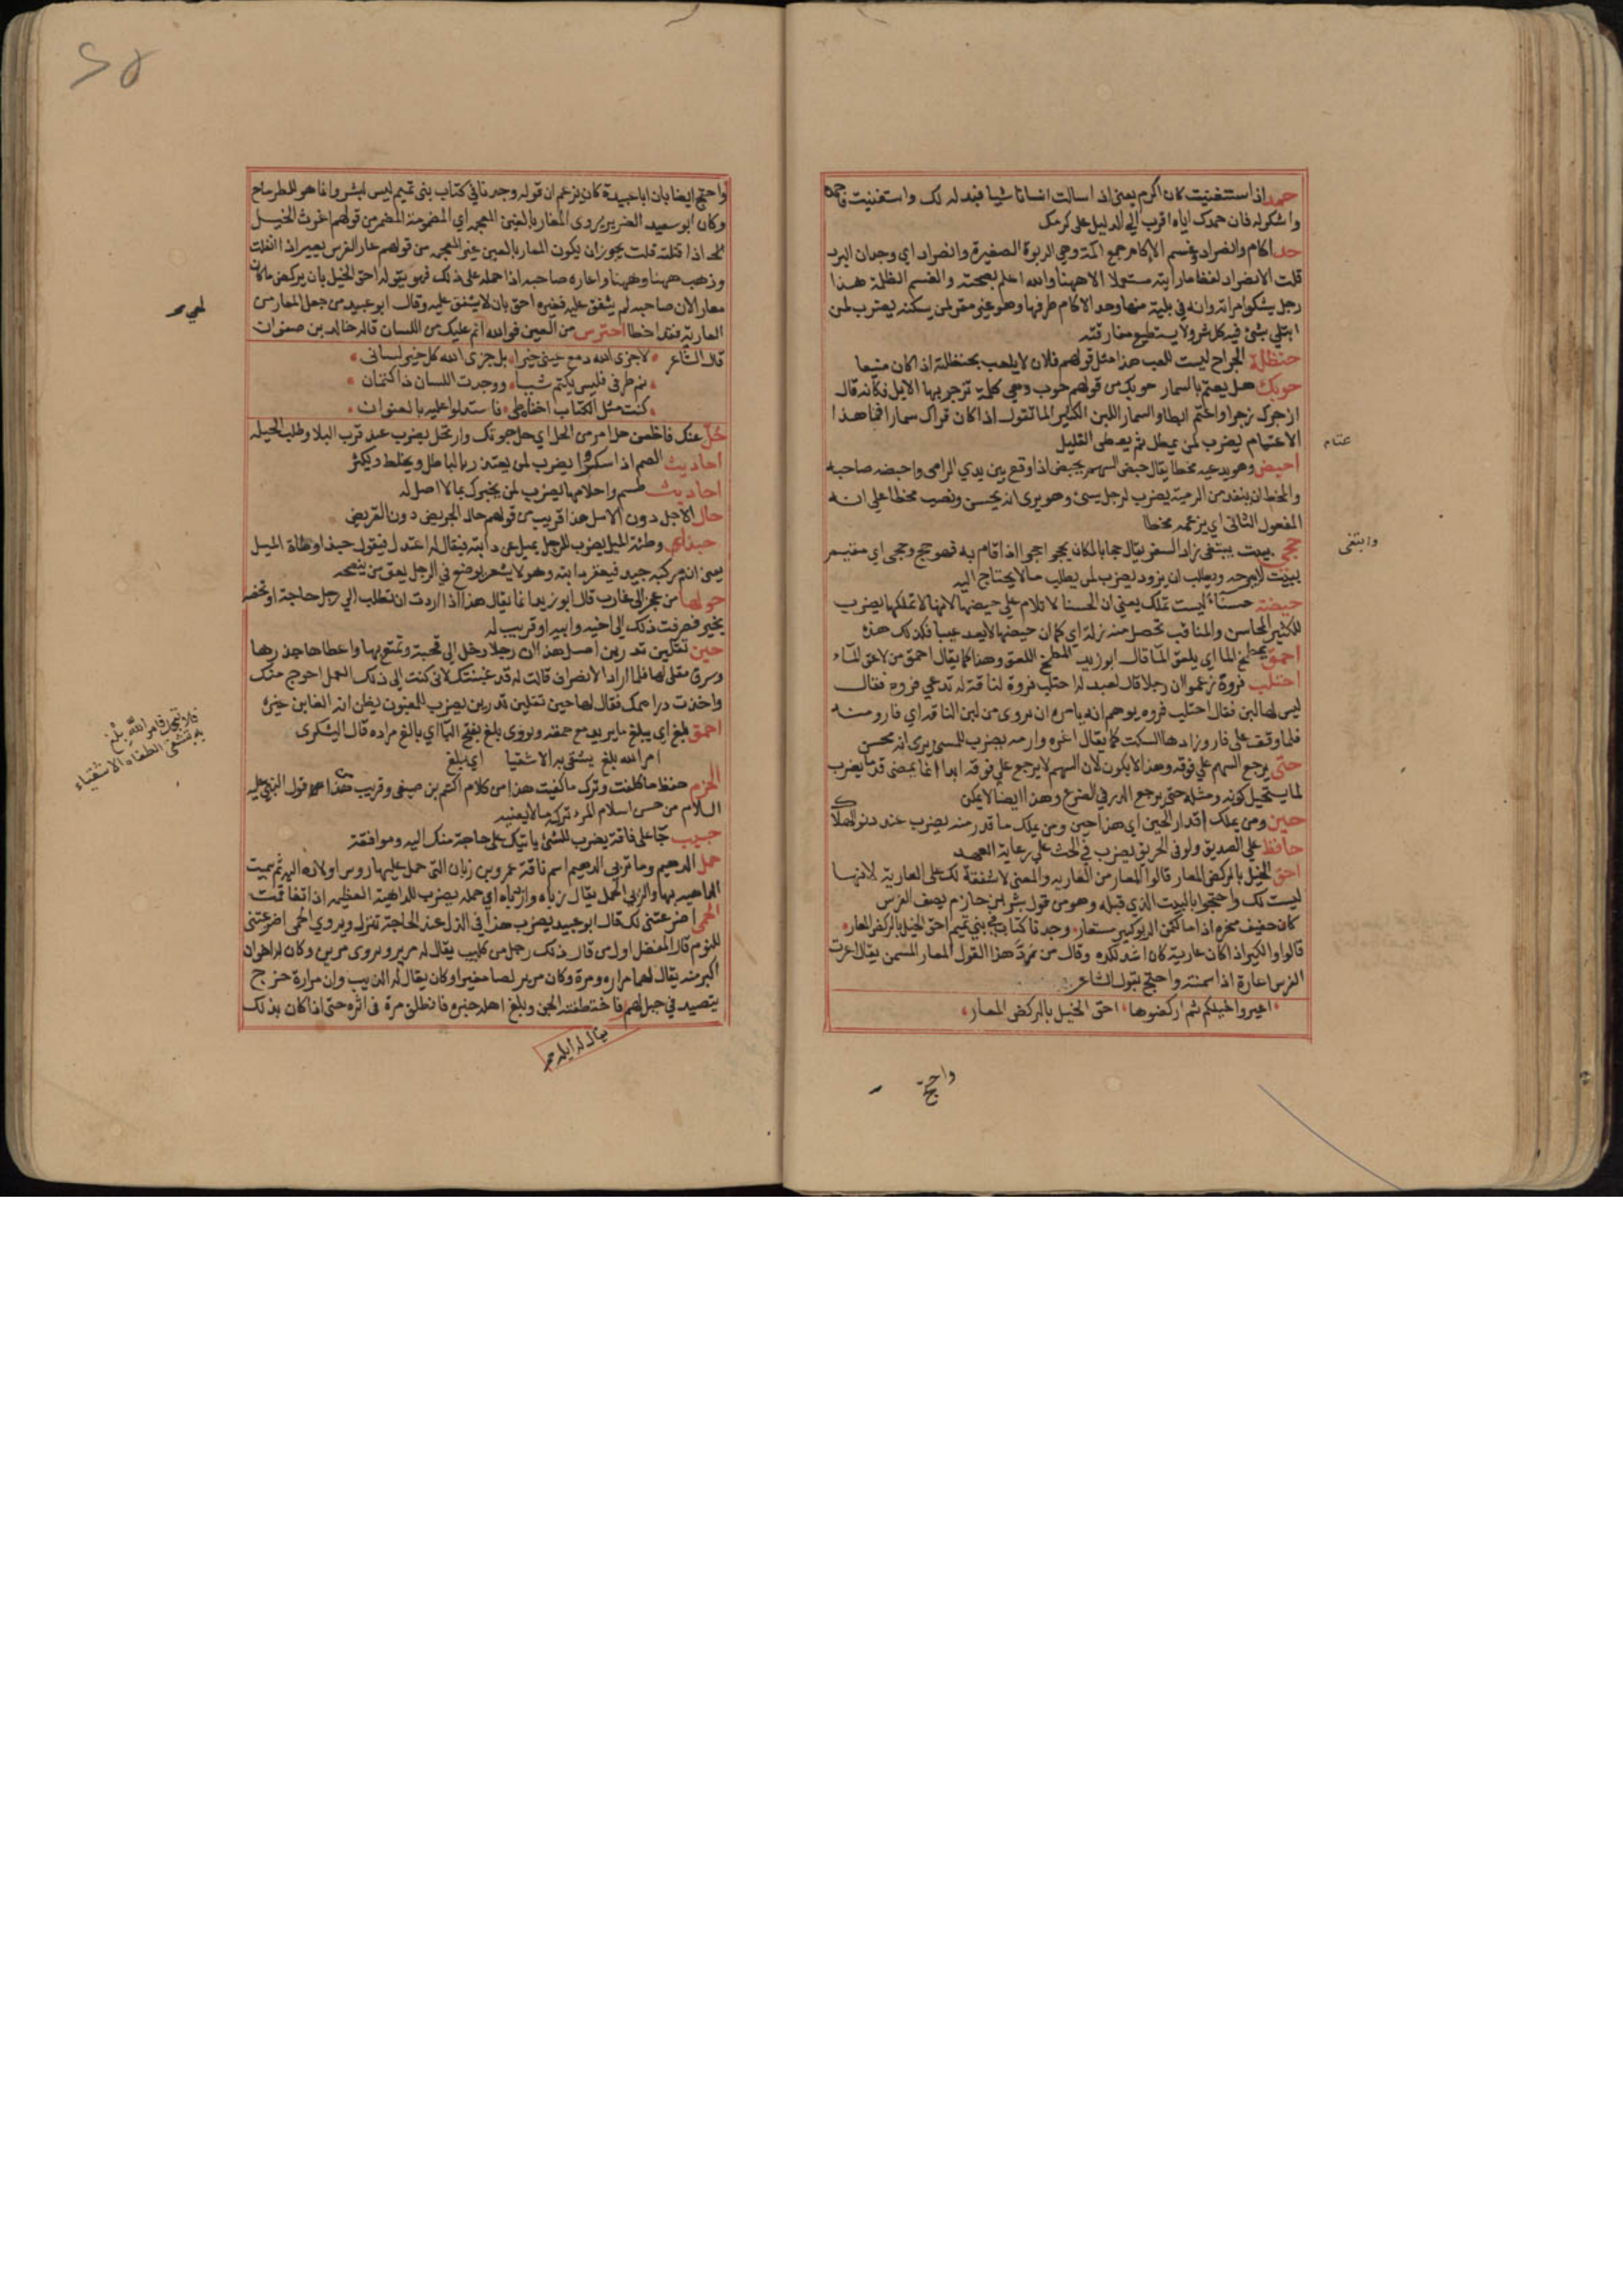 حمد اذا استغنيت كان اكرم يعني اذا سالت انسانا شيا فبذله لك واستغنيت فاحمده
واشكر له فان حمدك اياه اقرب الي الدليل على كرمك
حد اكام وانصراد وغسم الاكام جمع اكمة وهي الربوة الصغيرة وانصراد اي وجدان البرد
قلت الانصراد لفظ ما رايته مستعملا الا ههنا والله اعلم بصحته والغسم الظلمة هذا
رجل يشكوا امراته وانه في بلية منها وحد الاكام طرفها وهو غير مقر لمن يسكنه يضرب لمن
ابتلي بشئ فيه كل شر ولا يستطيع مفارقته
حنظلة الجراح ليست للعب هذا مثل قولهم فلان لا يلعب بحنظلته اذا كان منيعا
حوبك هل يعتم بالسمار حوبك من قولهم حوب وهي كلمة تزجر بها الابل فكانه قال
ازجرك زجرا واعتم ابطا والسمار اللبن الكثير الما تقول اذا كان قراك سمارا فما هذا
الاعتمام يضرب لمن يمطل ثم يعطى القليل
عتام
احبض وهو يدعيه مخطا يقال حبض السهم يحبض اذا وقع بين يدي الرامى واحبضه صاحبه
والمخط ان ينفد من الرمية يضرب لرجل يسئ وهو يرى انه يحسن ونصب مخطا علي انه
المفعول الثانى اي يزعمه مخطا
حجى بيت يبتغى زاد السفر يقال حجا بالمكان يحجوا حجوا اذا قام به فهو حج وحجى اي مقيم
وابتغى
ببيت لا يبرحه ويطلب ان يزود يضرب لمن يطلب ما لا يحتاج اليه
حيضة حسناء ليست تملك يعنى ان الحسنا لا تلام علي حيضها لانها لا تملكها يضرب
للكثير المحاسن والمناقب تحصل منه زلة اي كما ان حيضها لا يعد عيبا فكذلك هذه
احمق يمطخ الما اي يلعق الما قال ابو زيد المطخ اللعق وهذا كما يقال احمق من لاعق الماء
احتلب فروة زعموا ان رجلا قال لعبد له احتلب فروة لناقة له تدعى فروه فقال
ليس لها لبن فقال احتلب فروه يوهم انه يامره ان يروى من لبن الناقة اي فارو منه
فلما وقف على فارو زادها السكت كما يقال اغزه وارمه يضرب للمسئ يرى انه محسن
حتى يرجع السهم علي فوقه وهذا لا يكون لان السهم لا يرجع علي فوقه ابدا انما يمضى قدما يضرب
لما يستحيل كونه ومثله حتى يرجع الدر في الضرع وهذا ايضا لا يمكن
حين ومن يملك اقدار الحين اي هذا حين ومن يملك ما قدر منه يضرب عند دنو الهلاك
حافظ علي الصديق ولو في الحريق يضرب في الحث علي رعاية العهد
احق الخيل بالركض المعار قالوا المعار من العاريه والمعنى لا شفقة لك على العارية لانها
ليست لك واحتجوا بالبيت الذي قبله وهو من قول بشر بن حازم يصف الفرس
كان حفيف منخره اذا ما كتمن الربو كير مستعار وجدنا كتاب بني تميم احق الخيل بالركض المعار
قالوا والكير اذا كان عارية كان اشد لكده وقال من يرد هذا القول المعار المسمن يقال اعرت
الفرس اعارة اذا سمنته واحتج بقول الشاعر
اعيروا خيلكم ثم اركضوها احق الخيل بالركض المعار
واحتج
واحتج ايضا بان ابا عبيدة كان يزعم ان قوله وجدنا في كتاب بنى تميم ليس لبشر وانما هو للطرماح
وكان ابو سعيد الضرير يروى المغار بالغين المعجمه اي المضمومة المضمر من قولهم اغرت الحبل
اذا فتلته قلت يجوز ان يكون المعار بالعين غير المعجمه من قولهم عار الفرس يعير اذا انفلت
وذهب ههنا وههنا واعاره صاحبه اذا حمله على ذلك فهو يقول احق الخيل بان يركض ما كان
معارا لان صاحبه لم يشفق عليه فغيره احق بان لا يشفق عليه وقال ابو عبيد من جعل المعار من
العارية فقد اخطا احترس من العين فوالله انم عليك من اللسان قاله خالد بن صفوان
قال الشاعر لا جزى الله دمع عينى خيرا بل جزى الله كل خير لسانى
نم طرفى فليس يكتم شيئا ووجدت اللسان ذا كتمان
كنت مثل الكتاب اخفاه طى فاستدلوا عليه بالعنوان
حل عنك فاظعن حل امر من الحل اي حل حبوتك وارتحل يضرب عند قرب البلا وطلب الحيله
احاديث الصم اذا سكروا يضرب لمن يعتذر بالباطل ويخلط ويكثر
احاديث طسم واحلامها يضرب لمن يخبرك بما لا اصل له
حال الاجل دون الامل هذا قريب من قولهم حال الجريض دون القريض
حبذا وطئة الميل يضرب للرجل يميل عن دابته فيقال له اعتدل فيقول حبذا وطاة الميل
يعنى انه مركبه جيد فيعقر دابته وهو لا يشعر يوضع في الرجل يعق من ينصحه
حولها من عجز الى غارب قال ابو زيد انما يقال هذا اذا اردت ان تطلب الي رجل حاجة او تخصه
بخير فصرفت ذلك الى اخيه وابيه او قريب له
حين تقلين تدرين اصل هذا ان رجلا دخل الى قحبة وتمتع بها واعطاها جذرها
وسرق مقلى لها فلما اراد الانصراف قالت له قد غبنتك لانى كنت الى ذلك العمل احوج منك
واخذت دراهمك فقال لها حين تقلين تدرين يضرب للمغبون يظن انه الغابن غيره
احمق بلغ اي يبلغ ما يريد مع حمقه ويروى بلغ بفتح البا اي بالغ مراده قال اليشكرى
امر الله بلغ يشقى به الاشقيا اي بلغ
الحزم حفظ ما كلفت وترك ما كفيت هذا من كلام اكثم بن صيفى وقريب من هذا قول النبي عليه
السلام من حسن اسلام المرء تركه ما لا يعنيه
حبيب جا على فاقة يضرب للشئ ياتيك على حاجة منك اليه وموافقة
حمل الدهيم وما تزبى الدهيم اسم ناقة عمرو بن زبان التى حمل عليها روس اولاده اليه ثم سميت
الداهيه بها والزبى الحمل يقال زباه وازدباه اي حمله يضرب للداهية العظيمه اذا تفاقمت
الحمى اضرعتنى لك قال ابو عبيد يضرب هذا في الذل عند الحاجة تنزل ويروي الحمى اضرعتنى
للنوم قال المفضل اول من قال ذلك رجل من كليب يقال له مرير ويروى مرين وكان له اخوان
اكبر منه يقال لهما مراره ومرة وكان مرير لصا مغيرا وكان يقال له الذيب وان مرارة خرج
يتصيد في جبل لهم فاختطفته الجن وبلغ اهله خبره فانطلق مرة فى اثره حتى اذا كان بذلك
فلا تبعد فامر الله بلغ
به تشقى الاشقياء